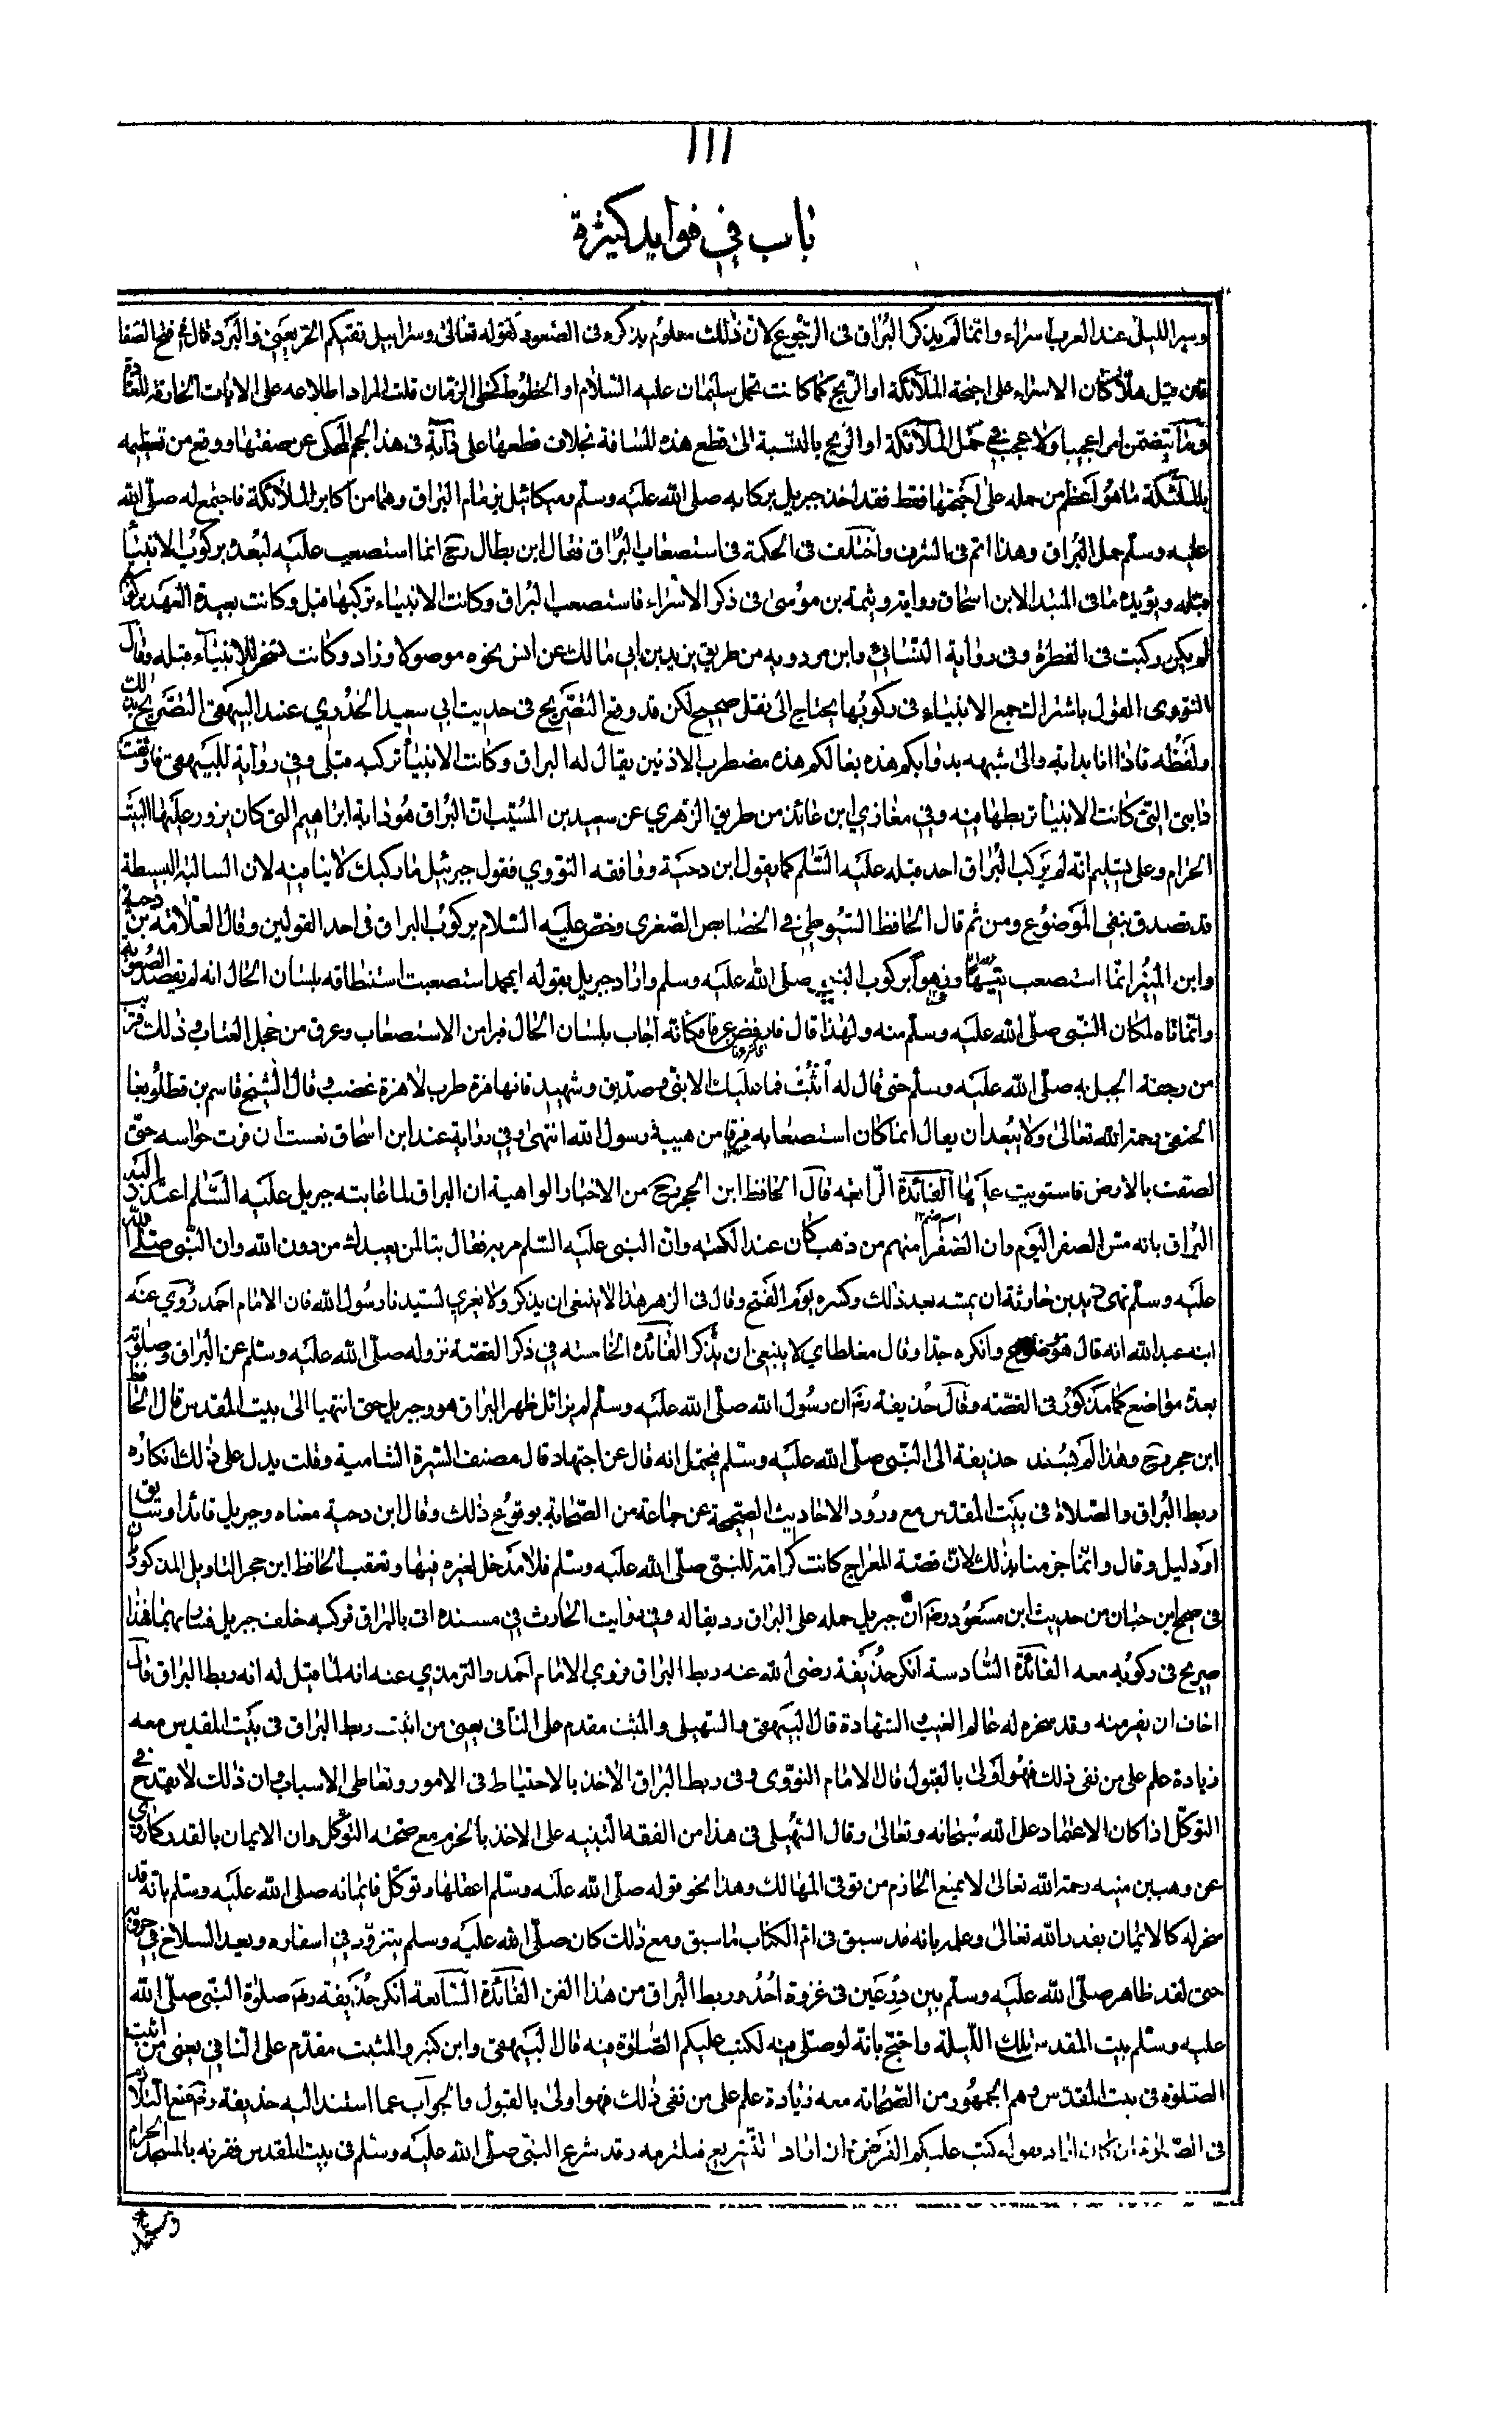 ١١١
باب في فوايد كثيرة
وسير الليل عند العرب اسراء وانما لم يذكر البراق في الرجوع لان ذلك معلوم بذكره في الصعود كقوله تعالى وسرابيل تقيكم الحر يعني والبرد قال في فتح الصفا
فان قيل هلا كان الاسراء على اجنحة الملائكة او الريح كما كانت تحمل سليمان عليه السلام او الخطوط كخطى الزمان قلت المراد اطلاعه على الايات الخارقة للعادة
وما يتضمن امرا عجيبا ولا عجب في حمل الملائكة او الريح بالنسبة الى قطع هذه المسافة بخلاف قطعها على دابة في هذا الحجم المحكى عن صفتها ووقع من تعظيمه
بالملائكة ما هو اعظم من حمله على اجنحتها فقط فقد اخذ جبريل بركابه صلى الله عليه وسلم وميكائيل بزمام البراق وهما من اكابر الملائكة فاجتمع له صلى الله
عليه وسلم حمل البراق وهذا اتم في الشرف واختلف في الحكمة في استصعاب البراق فقال ابن بطال رح انما استصعب عليه لبعد ركوب الانبياء
قبله ويؤيده ما في المبتدا لابن اسحاق رواية وثيمة بن موسى في ذكر الاسراء فاستصعب البراق وكانت الانبياء تركبها قبل وكانت بعيدة العهد بركوبهم
لم يكن ركبت في الفطرة وفي رواية النسائي وابن مردويه من طريق يزيد بن ابي مالك عن انس نحوه موصولا وزاد وكانت تسخر للانبياء قبله وقال
النووى القول باشتراك جميع الانبياء في ركوبها يحتاج الى نقل صحيح لكن قد وقع التصريح في حديث ابي سعيد الخدري عند البيهقى التصريح بذلك
ولفظه فاذا انا بدابة والى شبهه بدوابكم هذه بغالكم هذه مضطرب الاذنين يقال له البراق وكانت الانبياء تركبه قبلى وفي رواية للبيهقى فاوثقت
دابتى التى كانت الانبياء تربطها فيه وفي مغازي ابن عائذ من طريق الزهري عن سعيد بن المسيب ان البراق هو دابة ابراهيم التى كان يزور عليها البيت
الحرام وعلى تسليم انه لم يركب البراق احد قبله عليه السلم كما يقول ابن دحية ووافقه النووي فقول جبرئيل ما ركبك لا ينافيه لان السالبة البسيطة
قد تصدق بنفى الموضوع ومن ثم قال الحافظ السيوطي في الخصايص الصغرى وخص عليه السلام بركوب البراق في احد القولين وقال العلامة بن دحية
وابن المنير انما استصعب تيها وزهوا بركوب النبي صلى الله عليه وسلم واراد جبريل بقوله ابمحمد استصعبت استنطاقه بلسان الحال انه لم يقصد الصعوبة
وانما تاه لمكان النبي صلى الله عليه وسلم منه ولهذا قال فارفض عرقا فكانه اجاب بلسان الحال فبرا من الاستصعاب وعرق من خجل العتاب وذلك قريب
من رجفة الجبل به صلى الله عليه وسلم حتى قال له اثبت فما عليك الا نبي وصديق وشهيد فانها هزة طرب لا هزة غضب وقال الشيخ قاسم بن قطلوبغا
الحنفي رحمة الله تعالى ولا يبعد ان يعال انما كان استصعابه فرقا من هيبة رسول الله انتهى وفي رواية عند ابن اسحاق نعست ان فرت حواسه حتى
لصقت بالارض فاستويت عليها الفائدة الرابعة قال الحافظ ابن الحجر رح من الاخبار الواهية ان البراق لما عاتبه جبريل عليه السلم اعتذر اليه
البراق بانه مس الصفر اليوم وان الصفر اصنم من ذهب كان عند الكعبة وان النبي عليه السلم مر به فقال تبا لمن يعبدك من دون الله وان النبي صلى الله
عليه وسلم نهى زيد بن حارثة ان يمسه بعد ذلك وكسره يوم الفتح وقال في الزهر هذا لا ينبغي ان يذكر ولا يعزي لسيدنا رسول الله فان الامام احمد روي عنه
ابنه عبد الله انه قال هو موضوع وانكره جدا وقال مغلطاي لا ينبغى ان يذكر الفائدة الخامسة في ذكر القصة نزوله صلى الله عليه وسلم عن البراق وصلوته
بعدة مواضع كما مذكور في القصة وقال حذيفة رض ان رسول الله صلى الله عليه وسلم لم يزائل ظهر البراق هو وجبريل حتى انتهيا الى بيت المقدس قال الحافظ
ابن حجر رح وهذا لم يسند حذيفة الى النبي صلى الله عليه وسلم فيحتمل انه قال عن اجتهاد قال مصنف السيرة الشامية وقلت يدل على ذلك انكاره
ربط البراق والصلاة في بيت المقدس مع ورود الاحاديث الصحيحة عن جماعة من الصحابة بوقوع ذلك وقال ابن دحية معناه وجبريل قائد او سايق
او دليل وقال وانما جزمنا بذلك لان قصة المعراج كانت كرامة للنبي صلى الله عليه وسلم فلا مدخل لغيره فيها وتعقب الحافظ ابن حجر التاويل المذكور بان
في صحيح ابن حبان من حديث ابن مسعود رض ان جبريل حمله على البراق رديفا له وفي رواية الحارث في مسنده اتى بالبراق فركبه خلف جبريل فسار بهما فهذا
صريح في ركوبه معه الفائدة السادسة انكر حذيفة رضى الله عنه ربط البراق فروي الامام احمد والترمذي عنه انه لما قيل له انه ربط البراق قال
اخاف ان يفر منه وقد سخره له عالم الغيب و الشهادة قال البيهقى والسهيلى والمثبت مقدم على النافى يعنى من اثبت ربط البراق في بيت المقدس معه
زيادة علم على من نفى ذلك فهو اولى بالقبول قال الامام النووى وفى ربط البراق الاخذ بالاحتياط في الامور وتعاطى الاسباب وان ذلك لا يقدح في
التوكل اذا كان الاعتماد على الله سبحانه وتعالى وقال السهيلى في هذا من الفقه التنبيه على الاخذ بالحزم مع صحة التوكل وان الايمان بالقدر كما روي
عن وهب بن منبه رحمة الله تعالى لا يمنع الحازم من توقى المهالك وهذا نحو قوله صلى الله عليه وسلم اعقلها وتوكل فايمانه صلى الله عليه وسلم بانه قد
سخر له كالايمان بقدر الله تعالى وعلمه بانه قد سبق في ام الكتاب ما سبق ومع ذلك كان صلى الله عليه وسلم يتزود في اسفاره ويعد السلاح في حروبه
حتى لقد ظاهر صلى الله عليه وسلم بين درعين في غزوة احد وربط البراق من هذا الفن الفائدة السابعة انكر حذيفة رض صلوة النبي صلى الله
عليه وسلم ببيت المقدس تلك الليلة واحتج بانه لو صلى فيه لكتب عليكم الصلوة فيه قال البيهقى وابن كثير والمثبت مقدم على النافي يعنى من اثبت
الصلوة في بيت المقدس وهم الجمهور من الصحابة معه زيادة علم على من نفى ذلك فهو اولى بالقبول والجواب عما استند اليه حذيفة رض منع التلازم
في الصلوة ان كان اراد بقوله كتب عليكم الفرض وان اراد التشريع فنلتزمه وقد شرع النبي صلى الله عليه وسلم في بيت المقدس فقرنه بالمسجد الحرام